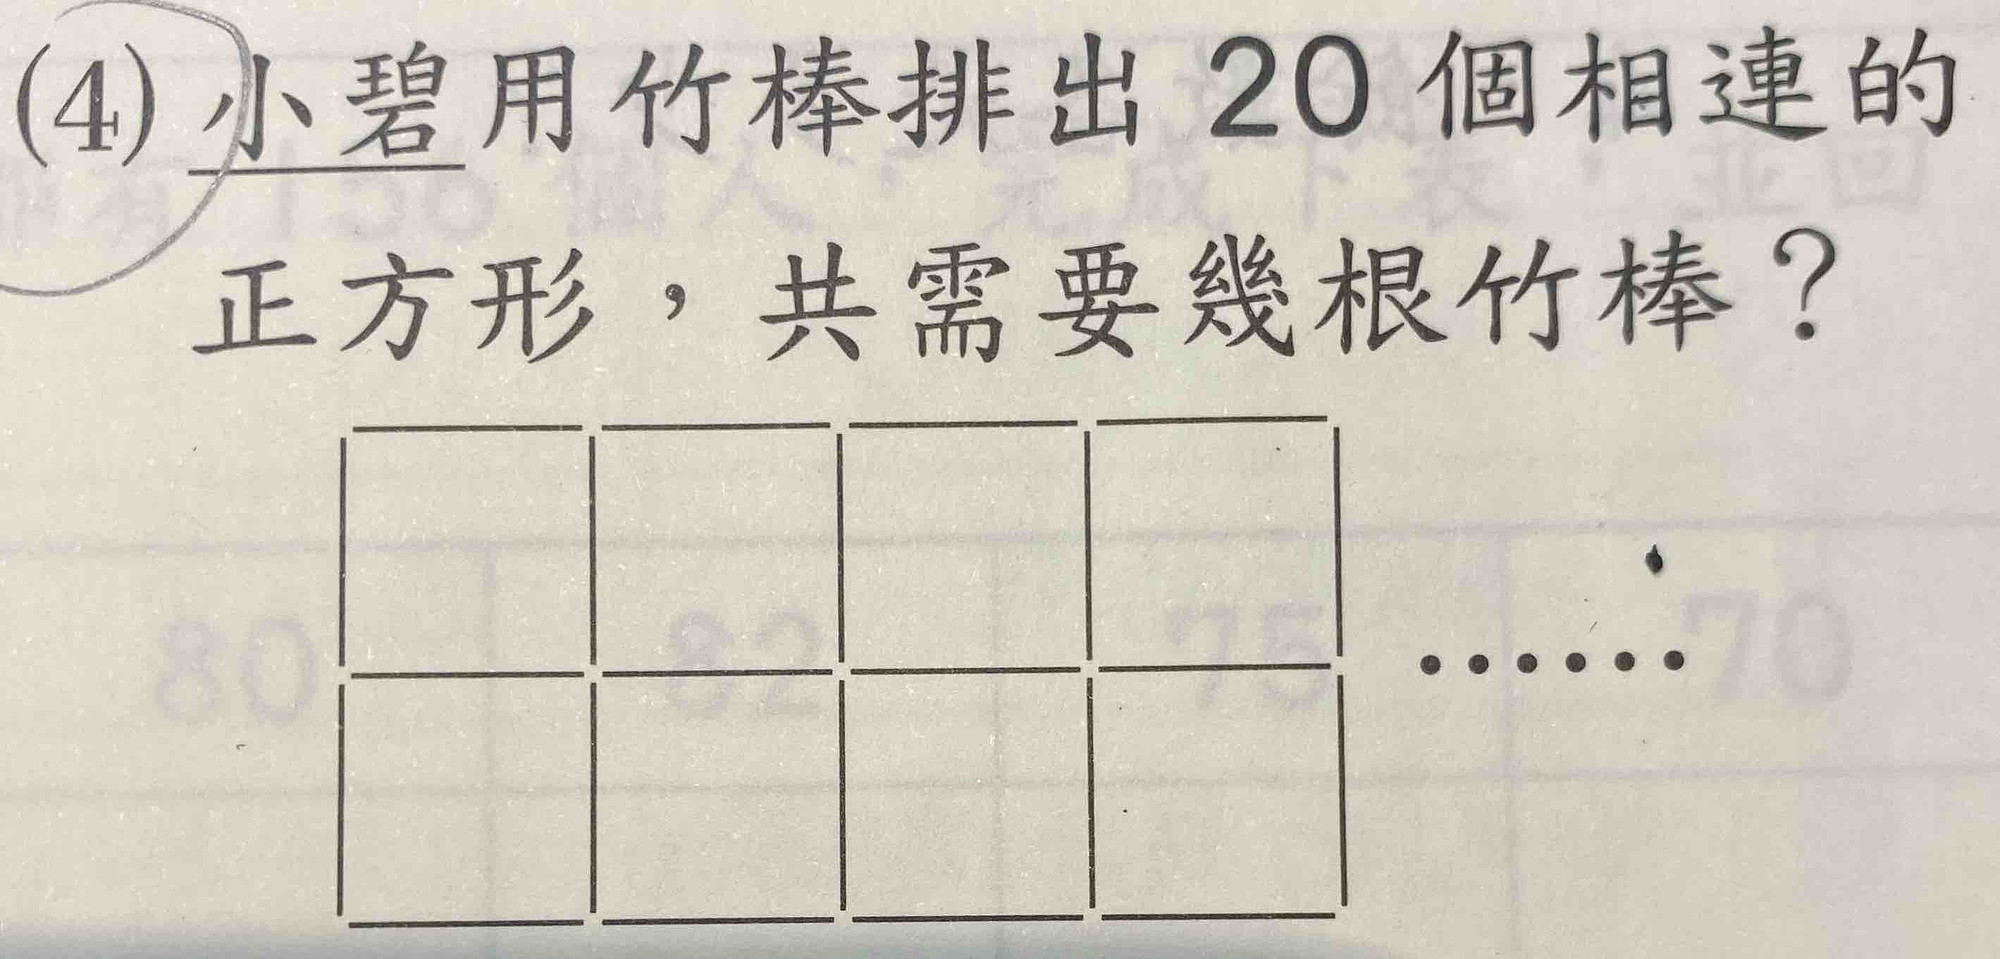 (4) 小碧用竹棒排出 20 個相連的
正方形，共需要幾根竹棒？
……